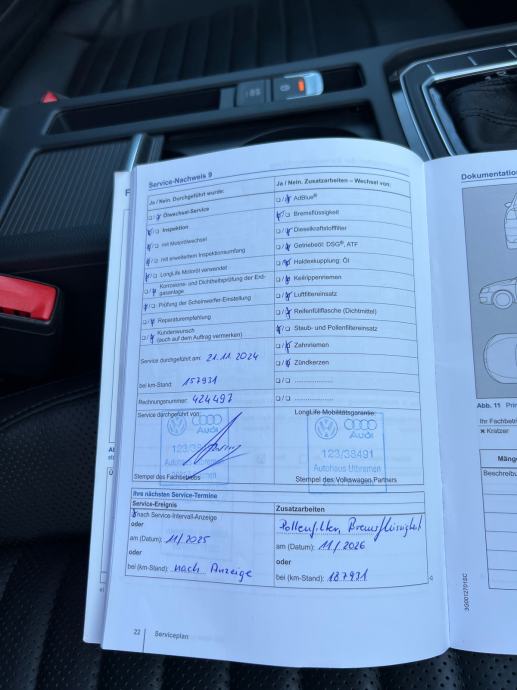 Service-Nachweis 9
Ja / Nein. Durchgeführt wurde:
Ölwechsel-Service
Inspektion
mit Motorölwechsel
mit erweitertem Inspektionsumfang
LongLife Motoröl verwendet
Korrosions- und Dichtheitsprüfung der Erd-
gasanlage
Prüfung der Scheinwerfer-Einstellung
Reparaturempfehlung
Kundenwunsch
(auch auf dem Auftrag vermerken)
Service durchgeführt am: 21.11.2024
bei km-Stand: 157931
Rechnungsnummer: 424497
Service durchgeführt von:
Audi
123/38491
Autohaus Utbremen
Stempel des Fachbetriebs
Ja / Nein. Zusatzarbeiten – Wechsel von:
AdBlue®
Bremsflüssigkeit
Dieselkraftstofffilter
Getriebeöl: DSG®, ATF
Haldexkupplung: Öl
Keilrippenriemen
Luftfiltereinsatz
Reifenfüllflasche (Dichtmittel)
Staub- und Pollenfiltereinsatz
Zahnriemen
Zündkerzen
LongLife Mobilitätsgarantie:
Audi
123/38491
Autohaus Utbremen
Stempel des Volkswagen Partners
Ihre nächsten Service-Termine
Service-Ereignis
nach Service-Intervall-Anzeige
oder
am (Datum): 11/2025
oder
bei (km-Stand): nach Anzeige
Zusatzarbeiten
Pollenfilter, Bremsflüssigkeit
am (Datum): 11/2026
oder
bei (km-Stand): 187931
22 Serviceplan
3G0012701BC
Dokumentation
Abb. 11
Ihr Fachbetri
× Kratzer
Mäng
Beschreibu